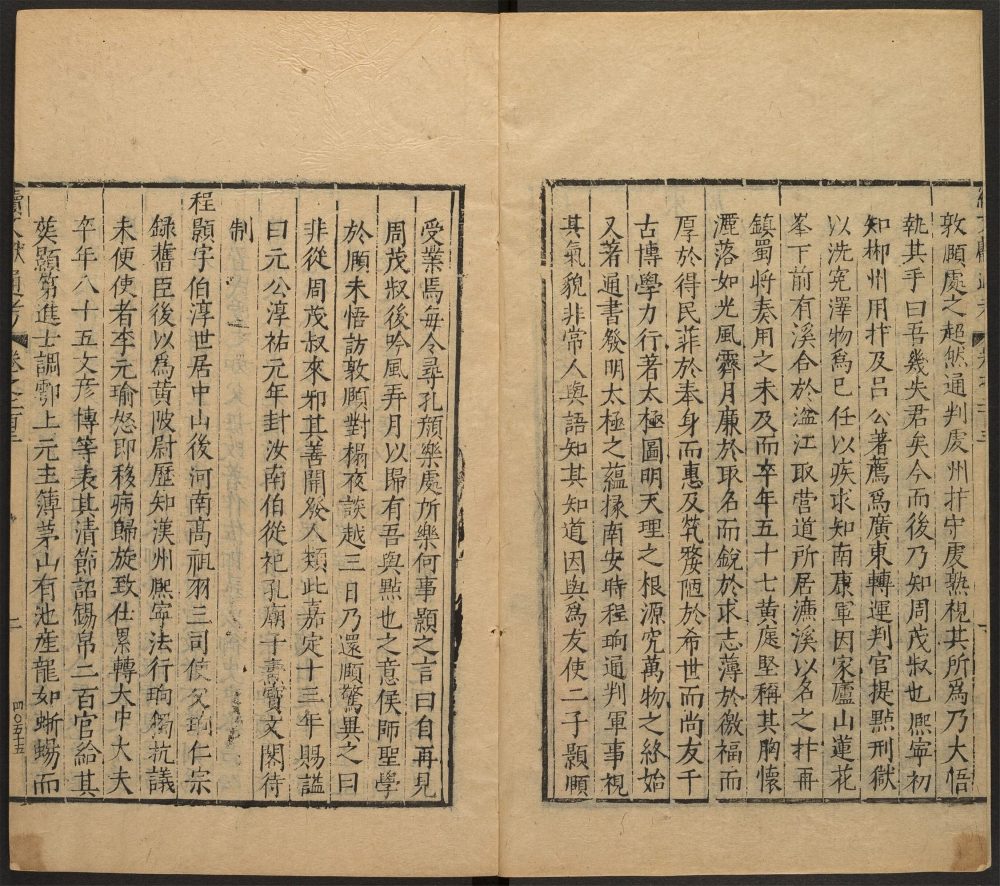 敦頤處之超然通判虔州抃守虔熟視其所爲乃大悟
執其手曰吾幾失君矣今而後乃知周茂叔也熙寧初
知郴州用抃及吕公著薦爲廣東轉運判官提㸃刑獄
以洗冤澤物爲已任以疾求知南康軍因家廬山蓮花
峯下前有溪合於湓江取营道所居濂溪以名之抃再
鎮蜀将奏用之未及而卒年五十七黄庭堅稱其胸懷
灑落如光風霽月廉於取名而銳於求志薄於徼福而
厚於得民菲於奉身而惠及煢嫠陋於希世而尚友千
古博學力行著太極圖明天理之根源究萬物之終始
又著通書發明太極之藴掾南安時程珦通判軍事視
其氣貌非常人與語知其知道因與爲友使二子顥頤
受業焉每令尋孔顔樂處所樂何事顥之言曰自再見
周茂叔後吟風弄月以歸有吾與㸃也之意侯師聖學
於頤未悟訪敦頤對榻夜談越三日乃還頤驚異之曰
非從周茂叔來耶其善開發人類此嘉定十三年賜謚
曰元公淳祐元年封汝南伯從祀孔廟子燾寶文閣待
制
程顥字伯淳世居中山後河南高祖羽三司使父珦仁宗
録舊臣後以爲黄陂尉歷知漢州熙寧法行珦獨抗議
未使使者李元瑜怒即移病歸旋致仕累轉大中大夫
卒年八十五文彦博等表其清節詔錫帛二百官給其
葬顥第進士調鄠上元主簿茅山有池産龍如蜥蜴而
續文獻通考
卷之二百三
二
四〇五十五